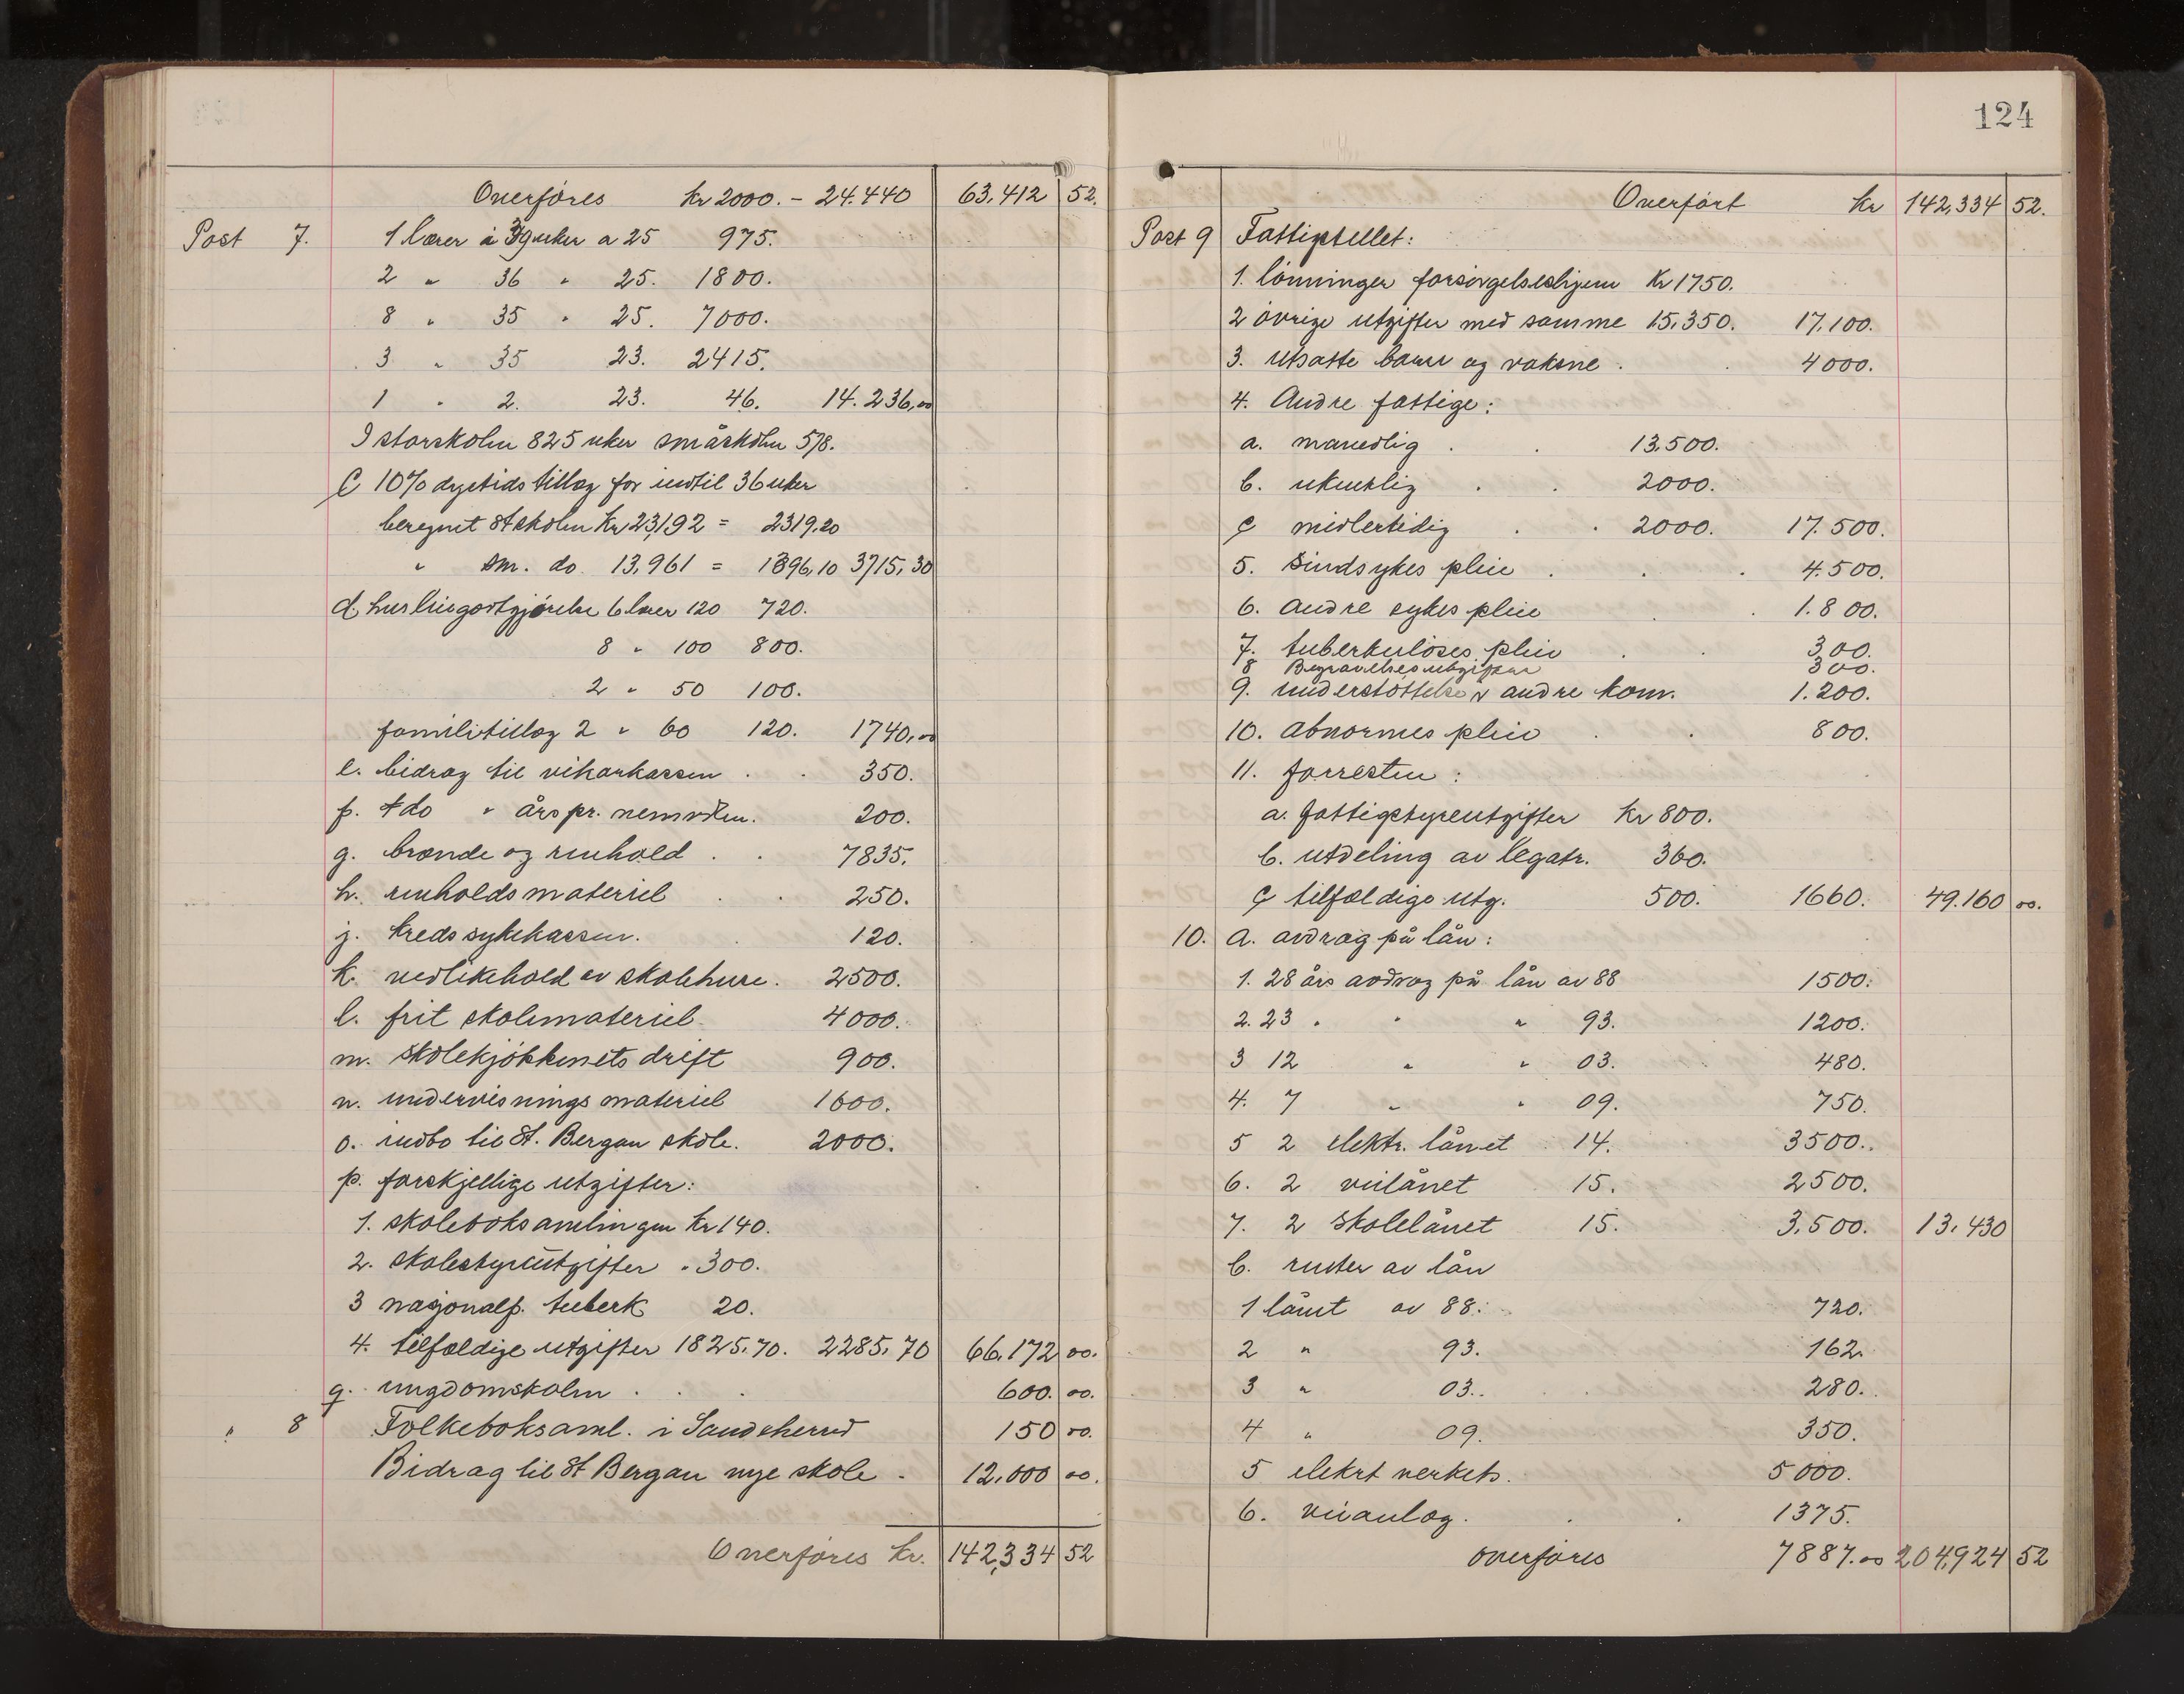 Overføres kr 2000. - 24.440 63,412 52.
Post 7. 1 lærer à 39 uker a 25 975.
2 " 36 " 25. 1800.
8 " 35 " 25. 7000.
3 " 35 23. 2415.
1 " 2. 23. 46. 14.236,00
I storskolen 825 uker småskolen 578.
C 10% dyrtids tillæg for indtil 36 uker
beregnet St skolen kr 23,192 = 2319,20
" sm. do. 13,961 = 1396,10 3715,30
d. husleiegodtgjørelse 6 lærer 120 720.
8 " 100 800.
2 " 50 100.
familietillæg 2 " 60 120. 1740,00
e. bidrag til vikarkassen . . 350.
f. do " års pr. nemnden. 200.
g. brænde og renhold . . 7835.
h. renholdsmateriel . . 250.
j. kredssykekassen. 120.
k. vedlikehold av skolehuse. 2500.
l. frit skolemateriel 4000.
m. skolekjøkkenets drift 900.
n. undervisningsmateriel 1600.
o. indbo til St. Bergan skole. 2000.
p. forskjellige utgifter:
1. skoleboksamlingen kr 140.
2. skolestyreutgifter " 300.
3 nasjonalf. tuberk 20.
4. tilfældige utgifter 1825,70. 2285,70 66,172 00.
q. ungdomskolen . . . 600. 00.
" 8 Folkeboksaml. i Sandeherred 150 00.
Bidrag til St Bergan nye skole . 12,000 00.
Overføres kr. 142,334 52
124
Overført kr 142,334 52.
Post 9 Fattigstellet:
1. lønninger forsørgelseshjem Kr 1750.
2 øvrige utgifter med samme 15,350. 17,100.
3. utsatte barn og voksne . . 4000.
4. Andre fattige:
a. manedlig . . 13,500.
b. ukentlig . . 2000.
c midlertidig . . 2000. 17.500.
5. Sindsykes pleie . . . 4.500.
6. andre sykes pleie . . 1.800.
7. tuberkuløses pleie . . 300.
8 Begravelsesutgifter 300.
9. understøttelse v andre kom. 1.200.
10. abnormes pleie . . 800.
11. forresten:
a. fattigstyreutgifter Kr 800.
b. utdeling av legatr. 360.
c tilfældige utg. 500. 1660. 49.160 00.
10. a. avdrag på lån:
1. 28 års avdrag på lån av 88 1500.
2. 23 " " " 93. 1200.
3 12 " " 03. 480.
4. 7 " " 09. 750.
5 2 elektr. lånet 14. 3500.
6. 2 veilånet 15. 2500.
7. 2 skolelånet 15. 3,500. 13,430
b. renter av lån
1 lånet av 88: 720.
2 " 93. 162.
3 " 03. 280.
4 " 09. 350.
5 elekrt verkets. 5000.
6. veianlæg. . . 1375.
overføres 7887.00 204,924 52